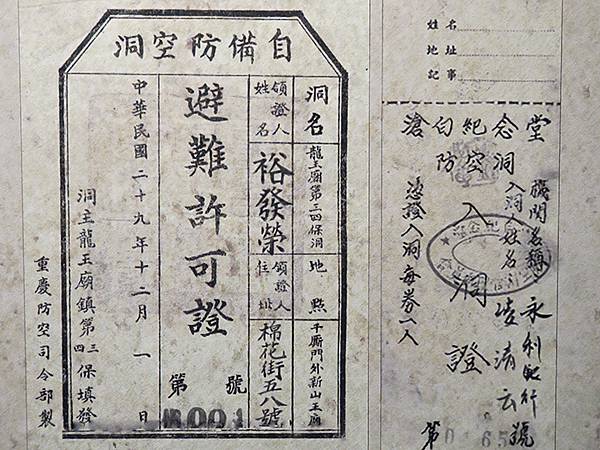 自備防空洞
洞名
龍王廟第三四保洞
地點
千厮門外新山王廟
領證人姓名
裕發榮
領證人住址
棉花街五八號
避難許可證
第 號
001
中華民國二十九年十二月一日
洞主龍王廟鎮第三四保填發
重慶防空司令部製
姓名
地址
記事
滄白紀念堂
防空洞
入洞證
機関名稱
永利銀行
入洞人姓名
凌濤云
憑證入洞每券一人
第 號